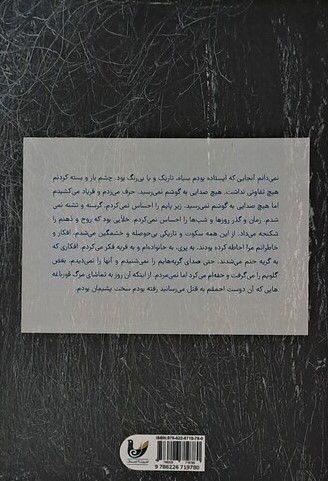 نمی‌دانم آنجایی که ایستاده بودم سیاه، تاریک و یا بی‌رنگ بود. چشم باز و بسته کردنم
هیچ تفاوتی نداشت. هیچ صدایی به گوشم نمی‌رسید. حرف می‌زدم و فریاد می‌کشیدم
اما هیچ صدایی به گوشم نمی‌رسید. زیر پایم را احساس نمی‌کردم. گرسنه و تشنه نمی
شدم. زمان و گذر روزها و شب‌ها را احساس نمی‌کردم. خلأیی بود که روح و ذهنم را
شکنجه می‌داد. از این همه سکوت و تاریکی بی‌حوصله و خشمگین می‌شدم. افکار و
خاطراتم مرا احاطه کرده بودند. به پری، به خانواده‌ام و به قریه فکر می‌کردم. افکاری که
به گریه ختم می‌شدند. حتی صدای گریه‌هایم را نمی‌شنیدم و آنها را نمی‌دیدم. بغض
گلویم را می‌گرفت و خفه‌ام می‌کرد اما نمی‌مردم. از اینکه آن روز به تماشای مرگ قورباغه
هایی که آن دوست احمقم به قتل می‌رسانید رفته بودم سخت پشیمان بودم.
ISBN: 978-622-6719-78-0
9 786226 719780